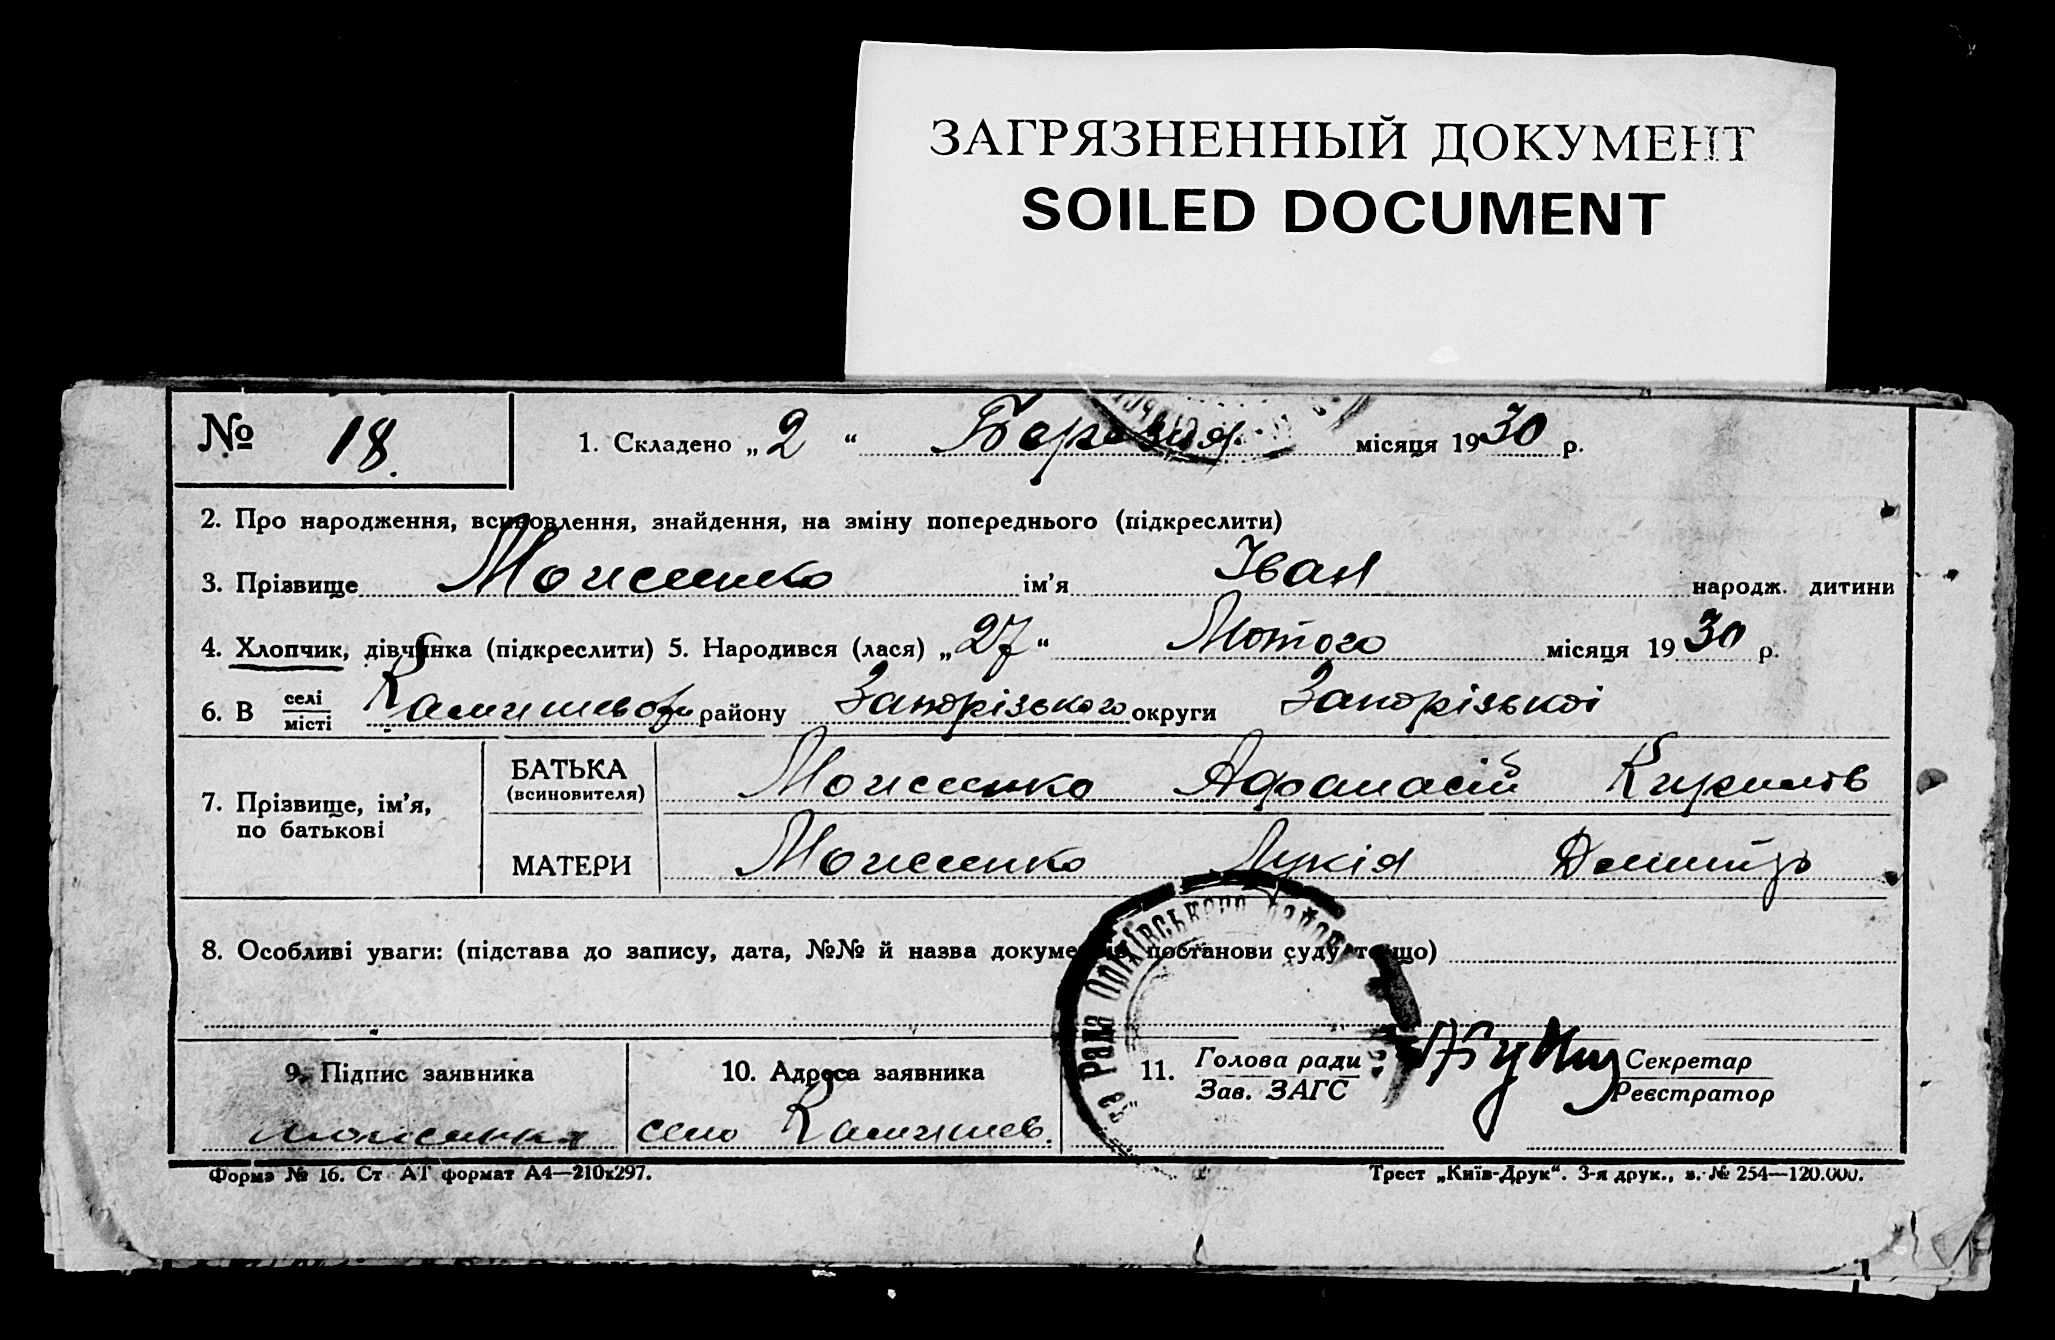 ЗАГРЯЗНЕННЫЙ ДОКУМЕНТ
SOILED DOCUMENT
№ 18. 1. Складено „2“ Березня місяця 1930 р.
2. Про народження, всиновлення, знайдення, на зміну попереднього (підкреслити)
3. Прізвище Моисеенко ім'я Іван народж. дитини
4. Хлопчик, дівчинка (підкреслити) 5. Народився (лася) „27“ Лютого місяця 1930 р.
6. В селі / місті району Запорізького округи Запорізької
7. Прізвище, ім'я, по батькові
БАТЬКА (всиновителя) Моисеенко Афанасій Кирилов
МАТЕРИ Моисеенко Лукія
8. Особливі уваги: (підстава до запису, дата, №№ й назва документів, постанови суду тощо)
Рада Оріхівського району
9. Підпис заявника 10. Адреса заявника 11. Голова ради / Зав. ЗАГС Секретар / Реєстратор
село Камишев.
Форма № 16. Ст АТ формат А4—210х297. Трест „Київ-Друк“. 3-я друк., з. № 254—120.000.